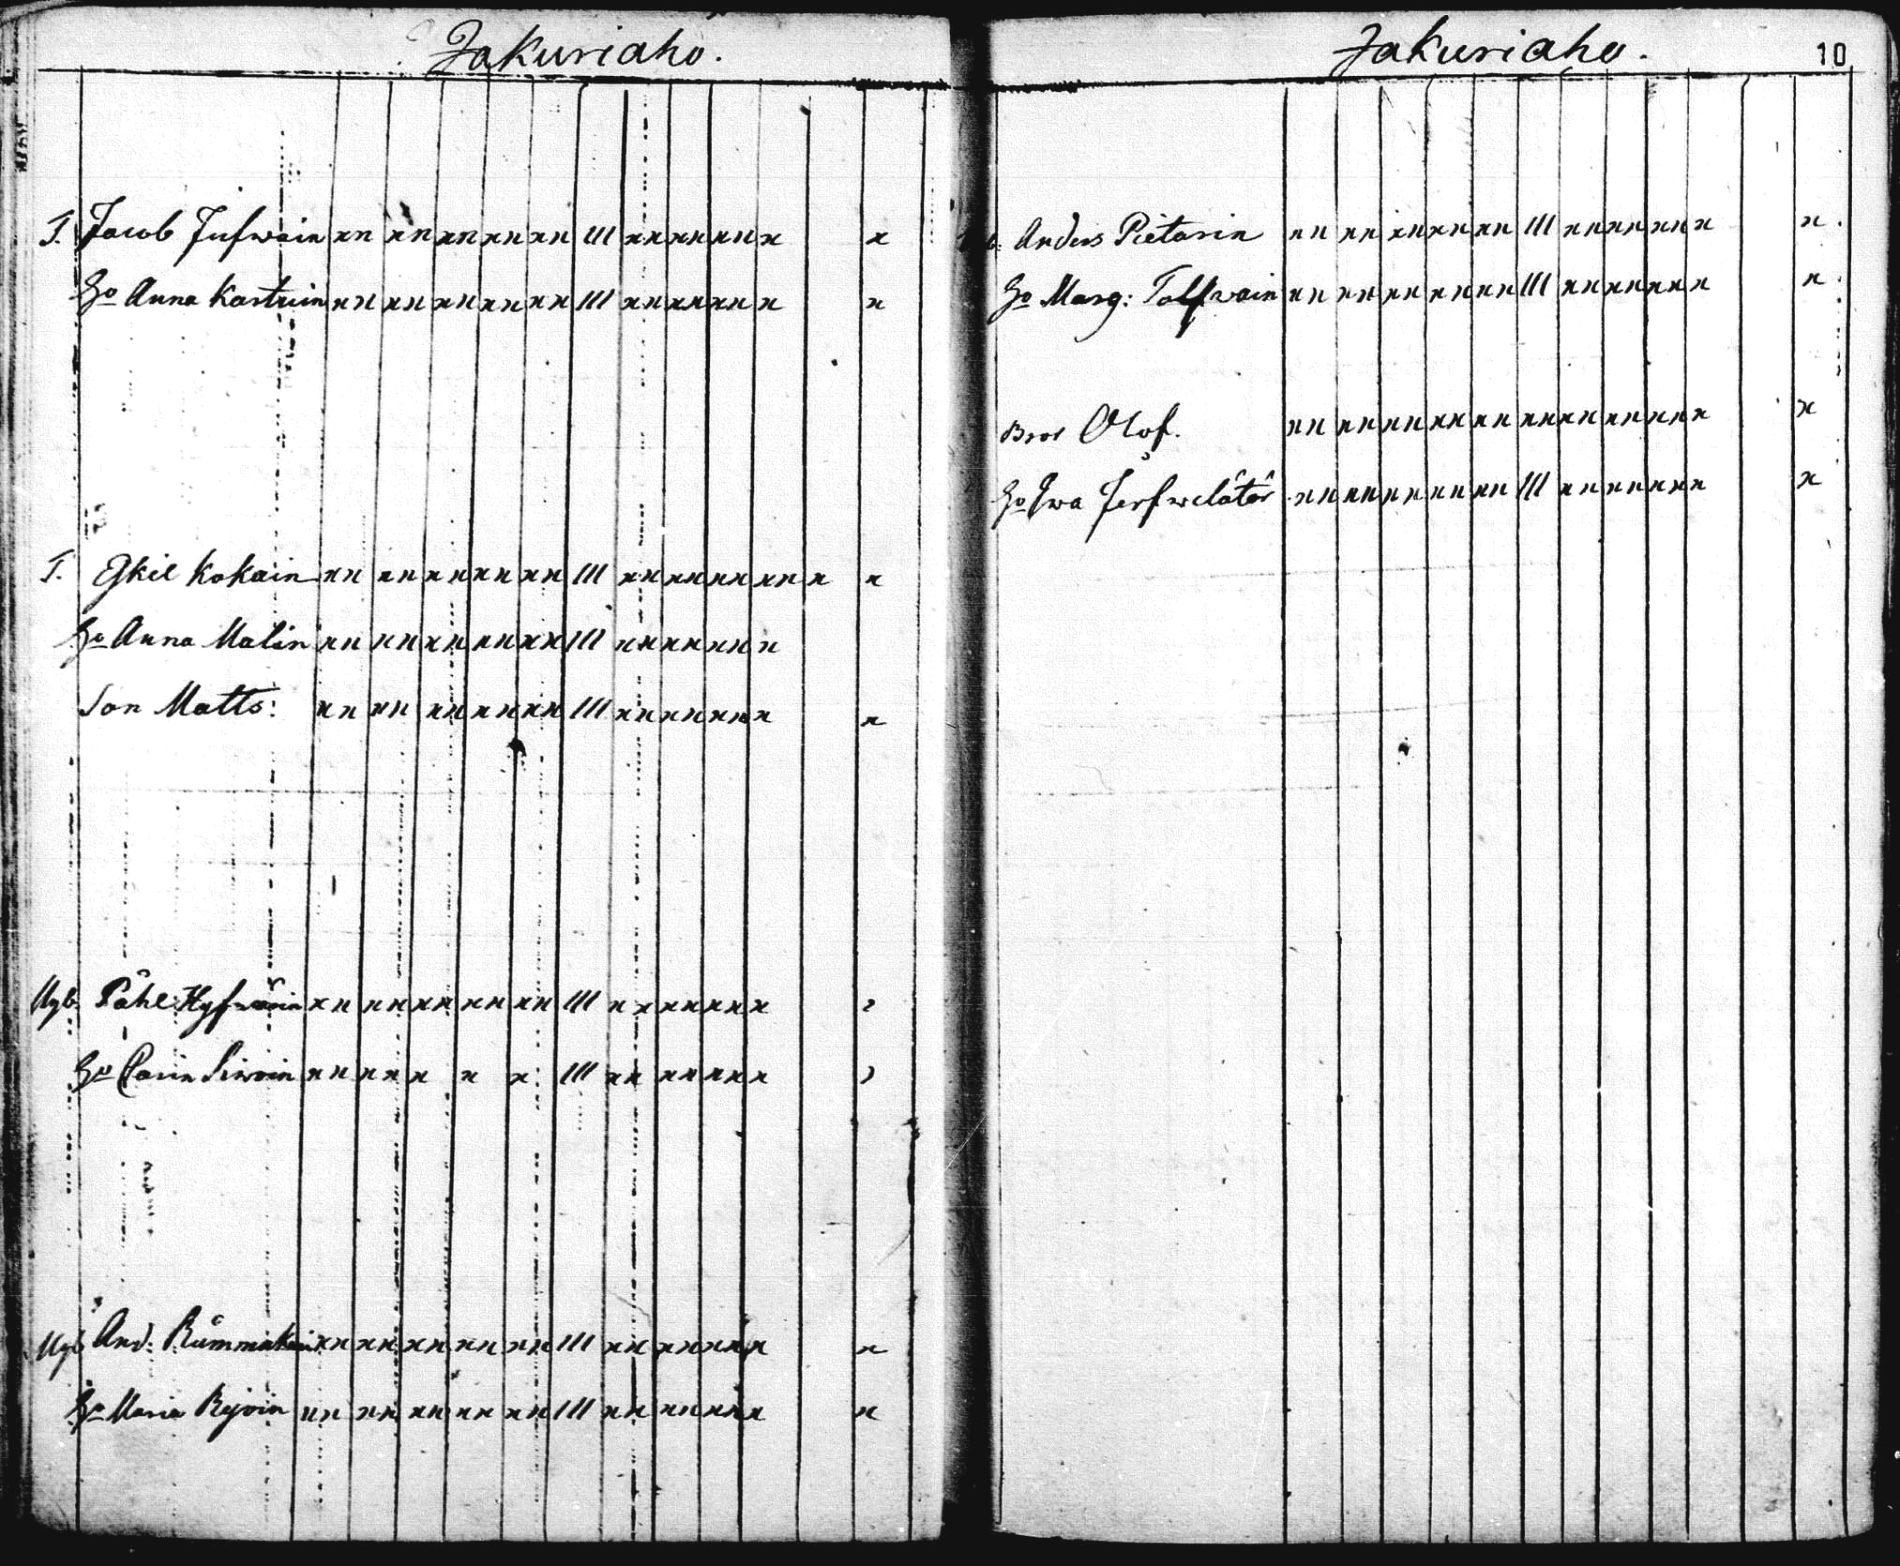 Jakuriaho.
T. Jacob Jufwain xx xx xx xx xx III xx xx xx x x
Ho Anna Kastuin xx xx xx xx xx III xx xx xx x x
T. Eskil Kokain xx xx xx xx xx III xx xx xx xx x x
Ho Anna Malin xx xx xx xx xx III xx xx xx x
Son Matts: xx xx xx xx xx III xx xx xx x x
Ngb. Påhl Hyfwärin xx xx xx xx xx III xx xx xx x
Ho Carin Sirwoin xx xx x x x III xx xx xx x
Ngb And. Rummakain xx xx xx xx xx III xx xx xx x x
Ho Maria Reijoin xx xx xx xx xx III xx xx xx x x
Jakuriaho. 10
Anders Pietarin xx xx xx xx xx III xx xx xx x x
Ho Marg: Tolfwain xx xx xx xx xx III xx xx xx x x
Bror Olof. xx xx xx xx xx xx xx xx xx x x
Ho Ewa Jerfweläter xx xx xx xx xx III xx xx xx x x